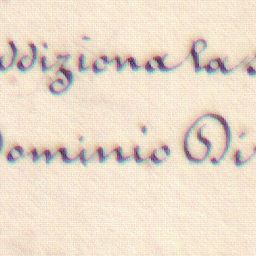 ddiziona la s
Dominio Di